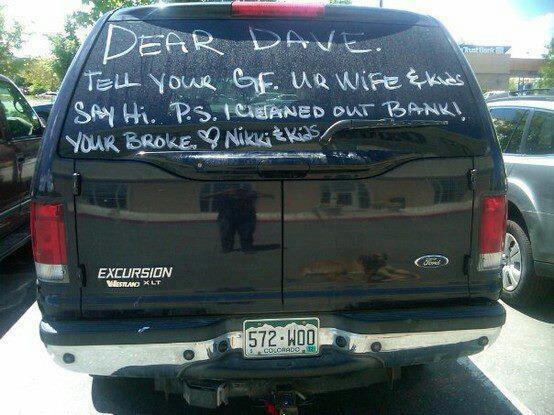 Trust Bank
DEAR DAVE.
TELL YOUR GF. UR WIFE & KIDS
SAY Hi. P.S. I ClEANED OUT BANK!
YOUR BROKE. ♡ Nikki & KiDS
EXCURSION
WESTLAND XLT
Ford
572·WOO
COLORADO